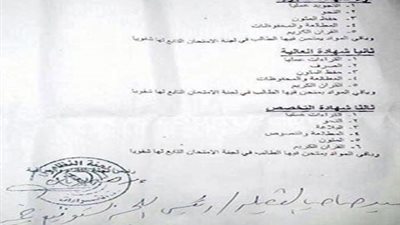 ١- التجويد عمليا
٢- النحو
٣- حفظ المتون
٤- المطالعة والمحفوظات
٥- القران الكريم
وباقي المواد يمتحن فيها الطالب في لجنة الامتحان التابع لها شفويا
ثانيا شهادة العالية
١- القراءات عمليا
٢- الصرف
٣- حفظ المتون
٤- المطالعة والمحفوظات
٥- القران الكريم
وباقي المواد يمتحن فيها الطالب في لجنة الامتحان التابع لها شفويا
ثالثا شهادة التخصص
١- القراءات عمليا
٢- النحو
٣- البلاغة
٤- المطالعة والنصوص
٥- المتون
٦- القران الكريم
وباقي المواد يمتحن فيها الطالب في لجنة الامتحان التابع لها شفويا